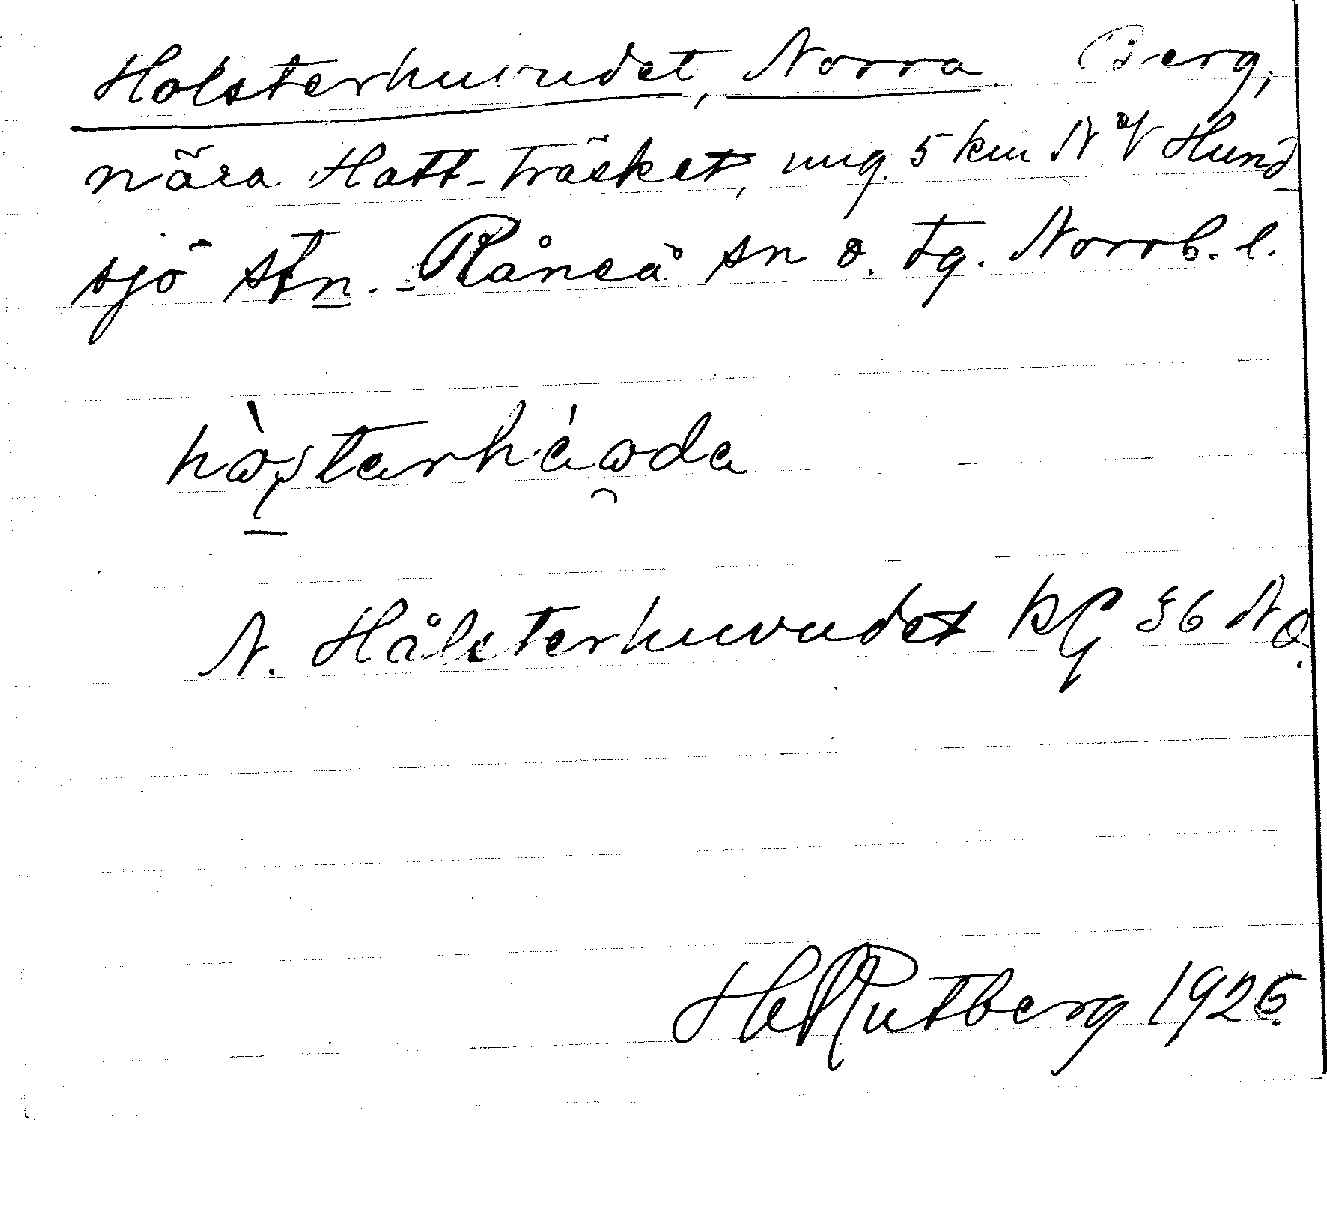 Holsterhuvudet, Norra Berg,
nära Hatt-träsket, ung. 5 km NV Hund-
sjö stn. Råneå sn o. tg. Norrb. l.
hòstarhàoda
N. Hålsterhuvudet kG 36 NO.
H Rutberg 1926